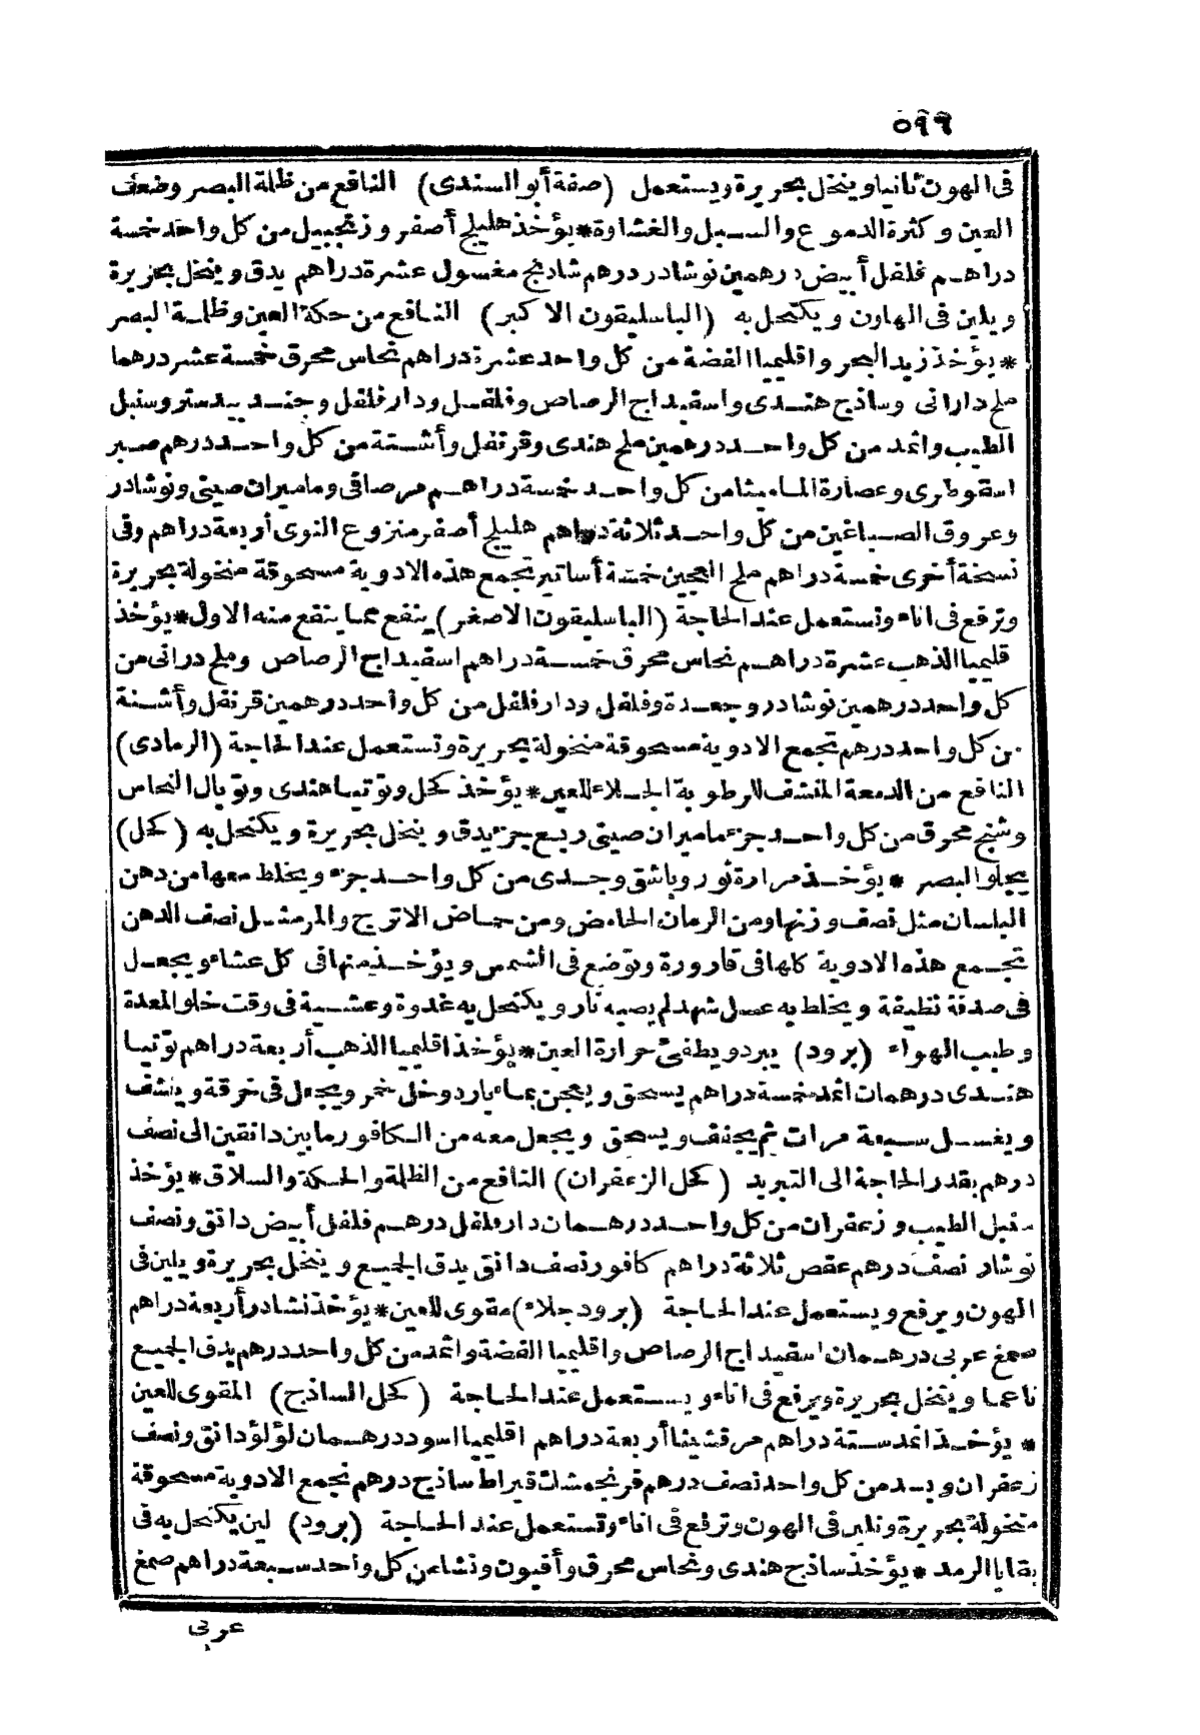 ٥٩٩
فى الهون ثانيا وينخل بحريرة ويستعمل (صفة أبو السندى) النافع من ظلمة البصر وضعف
العين وكثرة الدموع والسبل والغشاوة * يؤخذ هليلج أصفر وزنجبيل من كل واحد خمسة
دراهم فلفل أبيض درهمين نوشادر درهم شادنج مغسول عشرة دراهم يدق وينخل بحريرة
ويلين فى الهاون ويكتحل به (الباسليقون الاكبر) النافع من حكة العين وظلمة البصر
* يؤخذ زبد البحر واقليميا الفضة من كل واحد عشرة دراهم نحاس محرق خمسة عشر درهما
ملح دارانى وساذج هندى واسفيداج الرصاص وفلفل ودار فلفل وجند بيدستر وسنبل
الطيب واثمد من كل واحد درهمين ملح هندى وقرنفل وأشنة من كل واحد درهم صبر
اسقوطرى وعصارة الماميثا من كل واحد خمسة دراهم مر صافى وماميران صينى ونوشادر
وعروق الصباغين من كل واحد ثلاثة دراهم هليلج أصفر منزوع النوى أربعة دراهم وفى
نسخة أخرى خمسة دراهم ملح العجين خمسة أساتير تجمع هذه الادوية مسحوقة منخولة بحريرة
وترفع فى اناء وتستعمل عند الحاجة (الباسليقون الاصغر) ينفع مما ينفع منه الاول * يؤخذ
قليميا الذهب عشرة دراهم نحاس محرق خمسة دراهم اسفيداج الرصاص وملح درانى من
كل واحد درهمين نوشادر وجعدة وفلفل ودار فلفل من كل واحد درهمين قرنفل وأشنة
من كل واحد درهم تجمع الادوية مسحوقة منخولة بحريرة وتستعمل عند الحاجة (الرمادى)
النافع من الدمعة المنشف للرطوبة الجلاء للعين * يؤخذ كحل وتوتيا هندى وتوبال النحاس
وشنج محرق من كل واحد جزء ماميران صينى ربع جزء يدق وينخل بحريرة ويكتحل به (كحل)
يجلو البصر * يؤخذ مرارة ثور وباشق وجدى من كل واحد جزء ويخلط معها من دهن
البلسان مثل نصف وزنها ومن الرمان الحامض ومن حماض الاترج والمر مثل نصف الدهن
تجمع هذه الادوية كلها فى قارورة وتوضع فى الشمس ويؤخذ منها فى كل عشاء ويجعل
فى صدفة نظيفة ويخلط به عسل شهد لم يصبه نار ويكتحل به غدوة وعشية فى وقت خلو المعدة
وطيب الهواء (برود) يبرد ويطفئ حرارة العين * يؤخذ اقليميا الذهب أربعة دراهم توتيا
هندى درهمان اثمد خمسة دراهم يسحق ويعجن بماء بارد وخل خمر ويجعل فى خرقة وينشف
ويغسل سبعة مرات ثم يجفف ويسحق ويجعل معه من الكافور ما بين دانقين الى نصف
درهم بقدر الحاجة الى التبريد (كحل الزعفران) النافع من الظلمة والحكة والسلاق * يؤخذ
سنبل الطيب وزعفران من كل واحد درهمان دار فلفل درهم فلفل أبيض دانق ونصف
نوشادر نصف درهم عفص ثلاثة دراهم كافور نصف دانق يدق الجميع وينخل بحريرة ويلين فى
الهون ويرفع ويستعمل عند الحاجة (برود جلاء) مقوى للعين * يؤخذ نشادر أربعة دراهم
صمغ عربى درهمان اسفيداج الرصاص واقليميا الفضة واثمد من كل واحد درهم يدق الجميع
ناعما وينخل بحريرة ويرفع فى اناء ويستعمل عند الحاجة (كحل الساذج) المقوى للعين
* يؤخذ اثمد ستة دراهم مرقشيثا أربعة دراهم اقليميا اسود درهمان لؤلؤ دانق ونصف
زعفران وبسد من كل واحد نصف درهم فرنجمشك قيراط ساذج درهم تجمع الادوية مسحوقة
منخولة بحريرة وتلين فى الهون وترفع فى اناء وتستعمل عند الحاجة (برود) لين يكتحل به فى
بقايا الرمد * يؤخذ ساذج هندى ونحاس محرق وأفيون ونشا من كل واحد سبعة دراهم صمغ
عربى